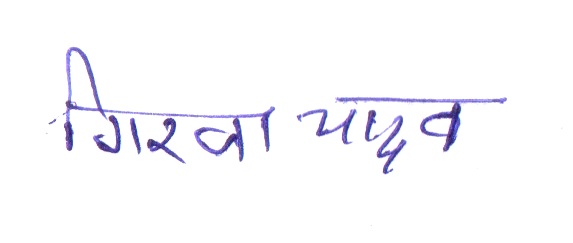 गिरवा यादव